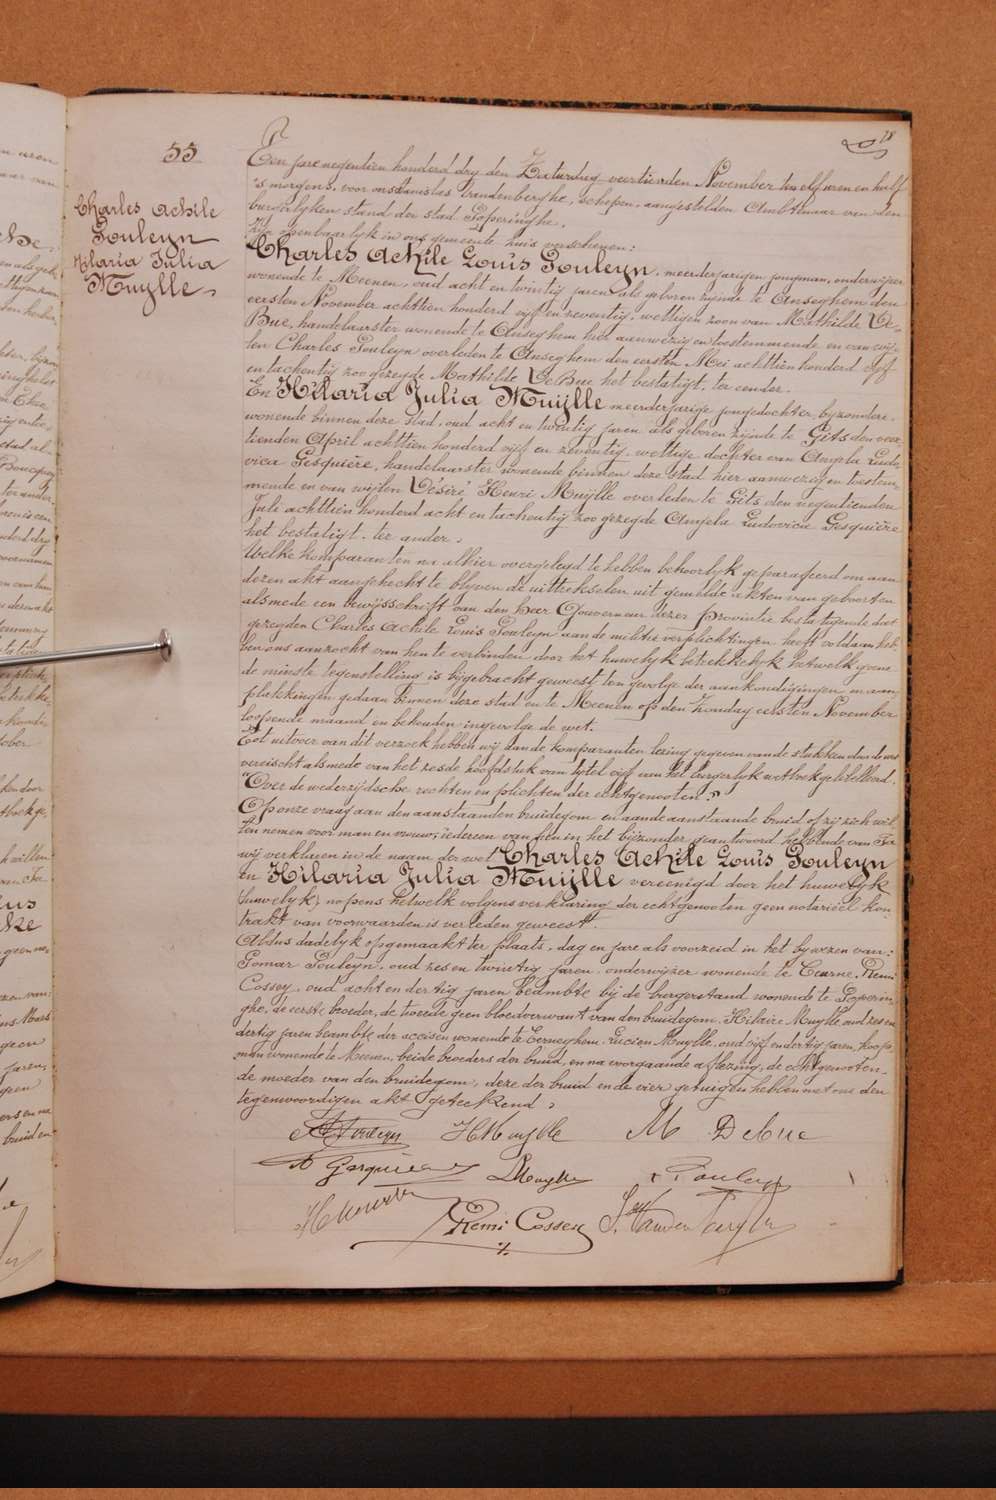 28
55
Charles Achile
Pouleyn
Hilaria Julia
Muylle
Ten jare negentien honderd dry den Zaturdag veertienden November ten elf uren en half
's morgens, voor ons Stanislas Vandenberghe, schepen, aangestelden Ambtenaar van den
burgerlyken stand der stad Poperinghe.
Zijn openbaarlyk in ons gemeente huis verschenen:
Charles Achile Louis Pouleyn, meerderjarigen jongman, onderwijzer
wonende te Meenen, oud acht en twintig jaren als geboren zijnde te Anseghem den
eersten November achttien honderd vijf en zeventig, wettigen zoon van Mathilde De-
Bue, handelaarster wonende te Anseghem hier aanwezig en toestemmende en van wij-
len Charles Pouleyn overleden te Anseghem den eersten Mei achttien honderd vijf
en tachentig zoo gezegde Mathilde DeBue het bestatigt, ter eender.
En Hilaria Julia Muylle meerderjarige jongedochter, byzondere
wonende binnen deze stad, oud acht en twintig jaren als geboren zijnde te Gits den veer-
tienden April achttien honderd vijf en zeventig, wettige dochter van Angela Ludo-
vica Gesquière, handelaarster wonende binnen deze stad hier aanwezig en toestem-
mende en van wijlen Désiré Henri Muylle overleden te Gits den negentienden
Juli achttien honderd acht en tachentig zoo gezegde Angela Ludovica Gesquière
het bestatigt, ter ander.
Welke komparanten na alhier overgelegd te hebben behoorlyk geparafeerd om aan
dezen akt aangehecht te blyven de uittrekselen uit gemelde akten van geboorten
alsmede een bewysschrift van den heer Gouverneur dezer provintie bestatigende dat
gezegden Charles Achile Louis Pouleyn aan de militie verplichtingen heeft voldaan heb-
ben ons aanzocht van hen te verbinden door het huwelyk betrekkelyk hetwelk geene
de minste tegenstelling is bygebracht geweest ten gevolge der aankondigingen en aan-
plakkingen gedaan binnen deze stad en te Meenen op den Zondag eersten November
loopende maand en behouden ingevolge de wet.
Tot uitvoer van dit verzoek hebben wij aan de komparanten lezing gegeven van de stukken door de wet
vereischt alsmede van het zesde hoofdstuk van tytel vijf van het burgerlyk wetboek getiteld:
"Over de wederzijdsche rechten en plichten der echtgenooten."
Op onze vraag aan den aanstaanden bruidegom en aan de aanstaande bruid of zij zich wil-
len nemen voor man en vrouw, iedereen van hen in het bijzonder geantwoord hebbende van Ja
wij verklaren in de naam der wet Charles Achile Louis Pouleyn
En Hilaria Julia Muylle vereenigd door het huwelyk
huwelyk, nopens hetwelk volgens verklaring der echtgenoten geen notariëel kon-
trakt van voorwaarden is verleden geweest.
Aldus dadelyk opgemaakt ter plaats, dag en jare als voorzeid in het bywezen van:
Gomar Pouleyn, oud zes en twintig jaren, onderwijzer wonende te Cuerne, Remi
Cossey, oud acht en dertig jaren beambte bij de burgerstand wonende te Poperin-
ghe, de eerste broeder, de tweede geen bloedverwant van den bruidegom, Hilaire Muylle, oud zes en
dertig jaren beambte der accisen wonende te Eerneghem, Lucien Muylle, oud vijf en dertig jaren, koop-
man wonende te Meenen, beide broeders der bruid, en na voorgaande aflezing, de echtgenooten-
de moeder van den bruidegom, deze der bruid en de vier getuigen hebben met ons den
tegenwoordigen akt geteekend.
A Pouleyn HMuylle M Debue
A Gesquiere LMuylle Pouleyn
HMuylle Remi Cossey St. Vandenberghe